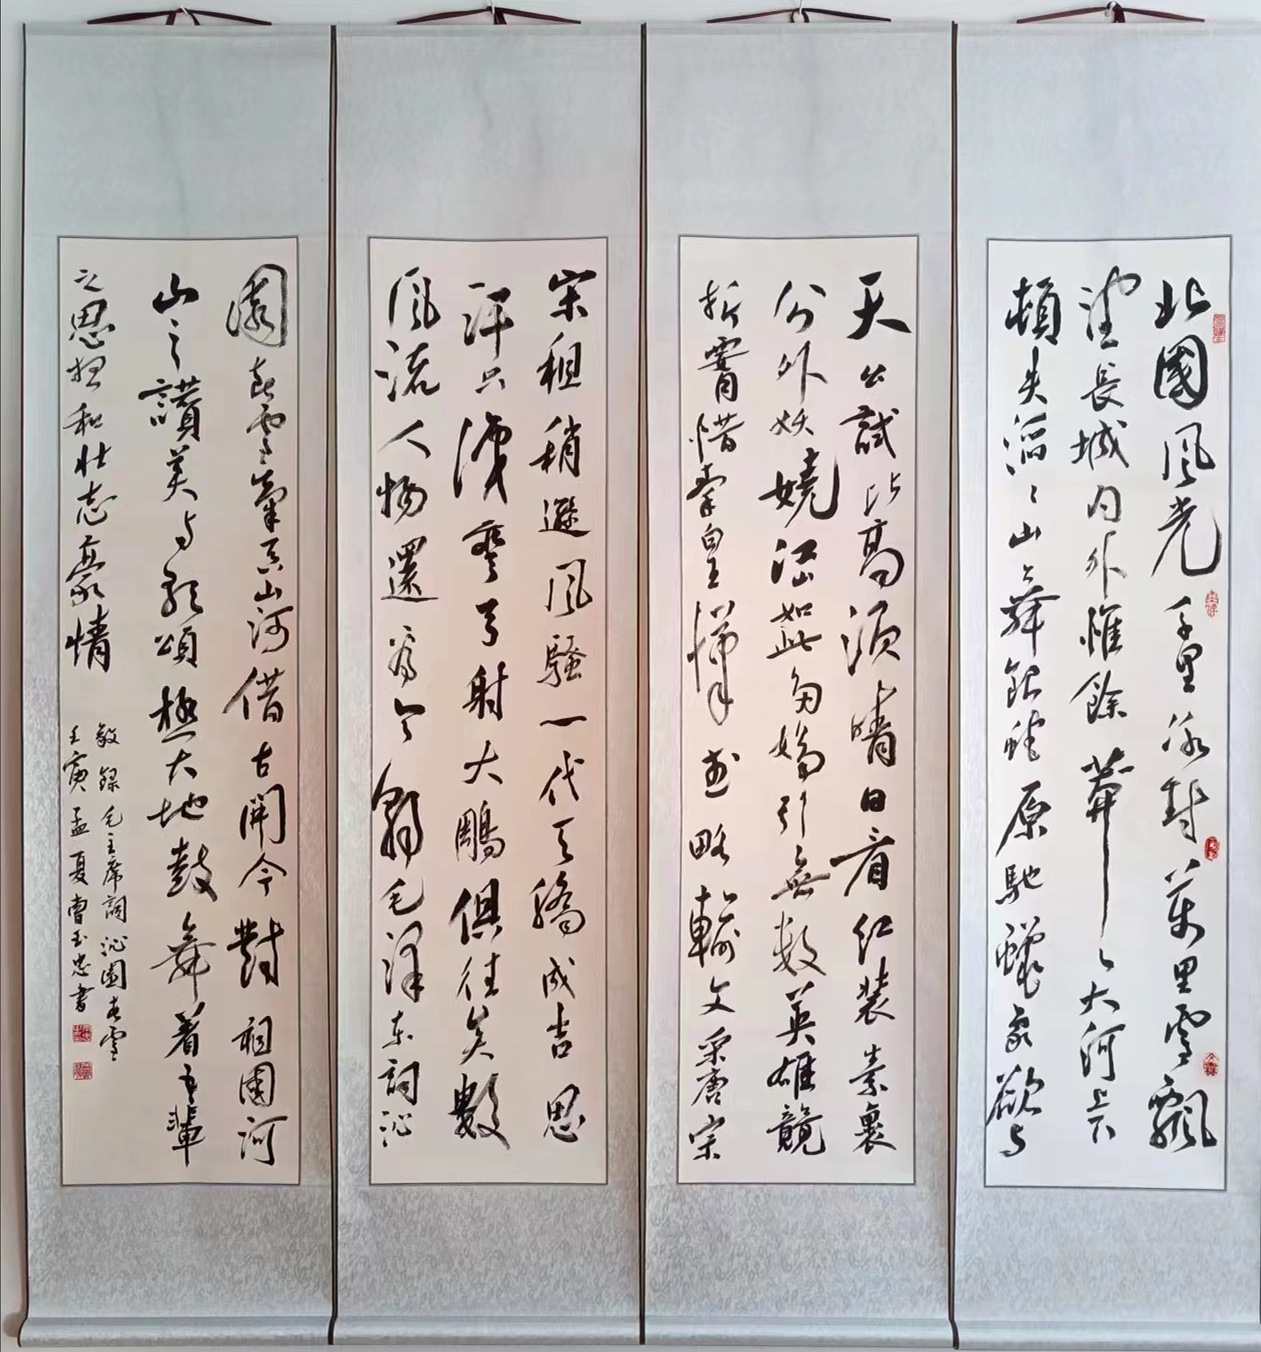 北國風光千里冰封萬里雪飄
望長城內外惟餘莽〻大河上下
頓失滔〻山舞銀蛇原馳蠟象欲與
天公試比高須晴日看紅裝素裹
分外妖嬈江山如此多嬌引無數英雄競
折腰惜秦皇漢武略輸文采唐宗
宋祖稍遜風騷一代天驕成吉思
汗只識彎弓射大鵰俱往矣數
風流人物還看今朝毛澤東詞沁
園春雪氣吞山河借古開今對祖國河
山之讚美與歌頌極大地鼓舞着
之思想和壯志豪情
敬錄毛主席詞沁園春雪
壬寅孟夏曹玉忠書